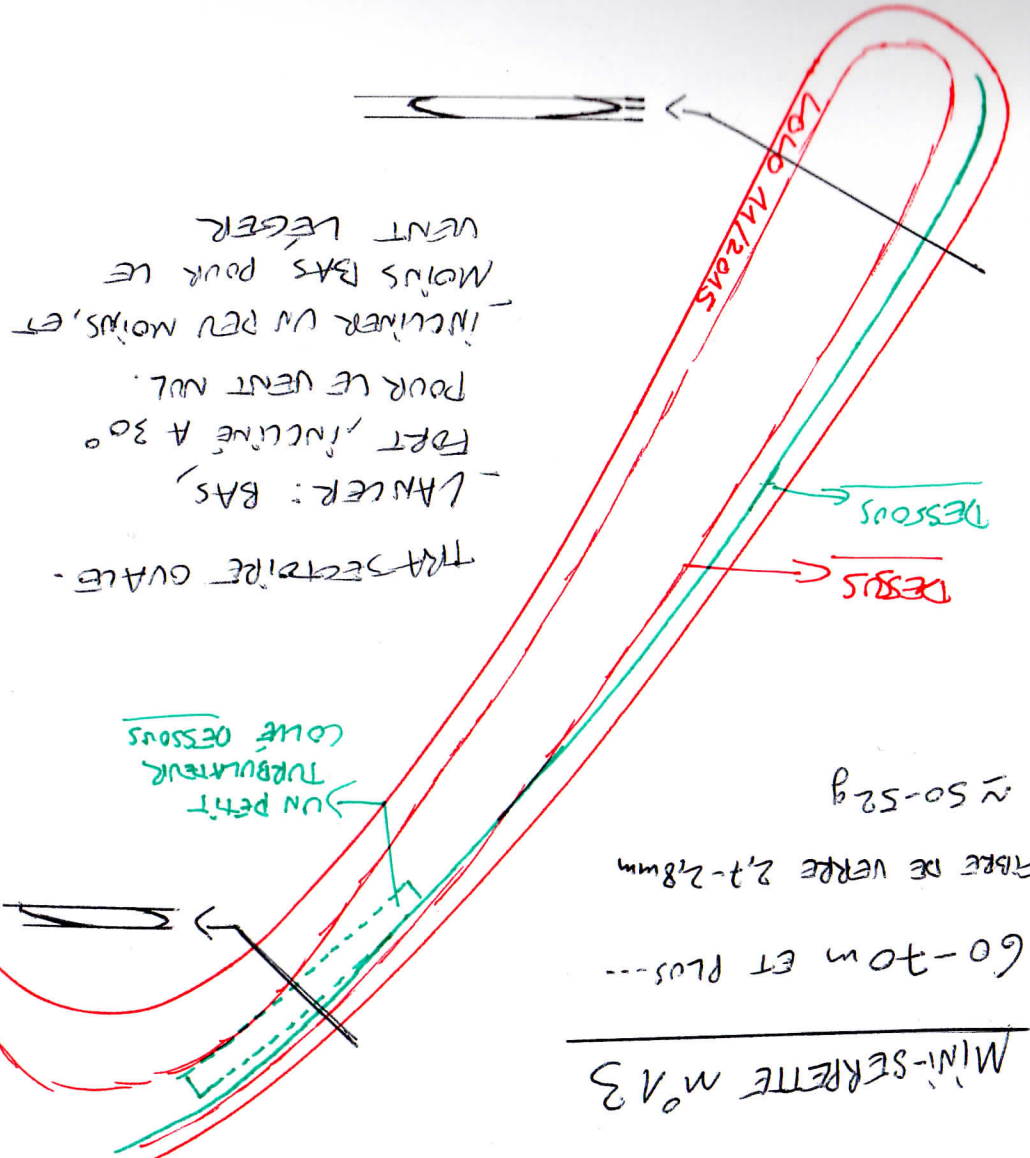 MINI-SERPETTE n°13
60-70m ET PLUS---
FIBRE DE VERRE 2,7-2,8mm
≈ 50-52g
UN PETIT
TURBULATEUR
COLLÉ DESSOUS
DESSUS
DESSOUS
TRAJECTOIRE OVALE.
- LANCER: BAS,
FORT, INCLINÉ A 30°
POUR LE VENT NUL.
- INCLINER UN PEU MOINS, ET
MOINS BAS POUR LE
VENT LÉGER
LOLO 11/2015